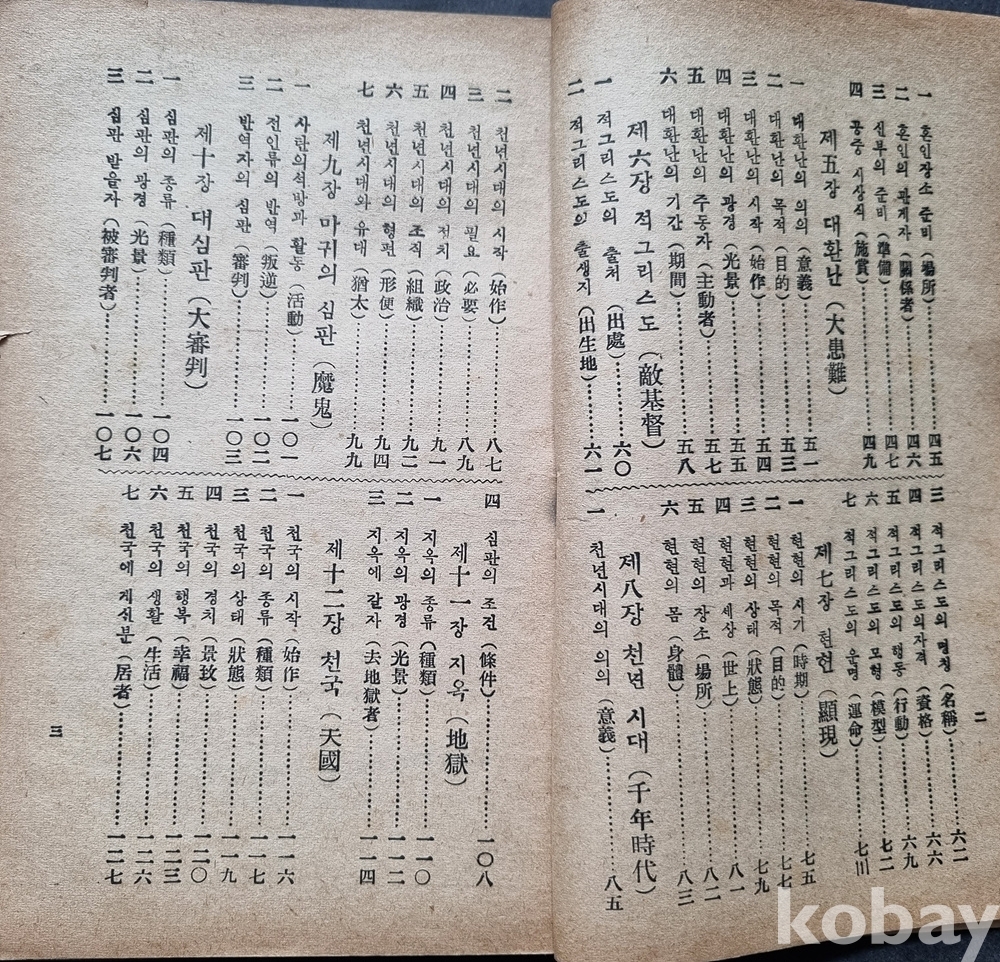 二
一 혼인장소 준비 (場所)……四五
二 혼인의 관계자 (關係者)……四六
三 신부의 준비 (準備)……四七
四 공중 시상식 (施賞)……四九
제五장 대환난 (大患難)
一 대환난의 의의 (意義)……五一
二 대환난의 목적 (目的)……五三
三 대환난의 시작 (始作)……五四
四 대환난의 광경 (光景)……五五
五 대환난의 주동자 (主動者)……五七
六 대환난의 기간 (期間)……五八
제六장 적그리스도 (敵基督)
一 적그리스도의 출처 (出處)……六〇
二 적그리스도의 출생지 (出生地)……六一
三 적그리스도의 명칭 (名稱)……六二
四 적그리스도의자격 (資格)……六六
五 적그리스도의 행동 (行動)……六九
六 적그리스도의 모형 (模型)……七二
七 적그리스도의 운명 (運命)……七三
제七장 현현 (顯現)
一 현현의 시기 (時期)……七五
二 현현의 목적 (目的)……七七
三 현현의 상태 (狀態)……七九
四 현현과 세상 (世上)……八一
五 현현의 장소 (場所)……八二
六 현현의 몸 (身體)……八三
제八장 천년 시대 (千年時代)
一 천년시대의 의의 (意義)……八五
二 천년시대의 시작 (始作)……八七
三 천년시대의 필요 (必要)……八九
四 천년시대의 정치 (政治)……九一
五 천년시대의 조직 (組織)……九二
六 천년시대의 형편 (形便)……九四
七 천년시대와 유대 (猶太)……九九
제九장 마귀의 심판 (魔鬼)
一 사탄의석방과 활동 (活動)……一〇一
二 전인류의 반역 (叛逆)……一〇二
三 반역자의 심판 (審判)……一〇三
제十장 대심판 (大審判)
一 심판의 종류 (種類)……一〇四
二 심판의 광경 (光景)……一〇六
三 심판 받을자 (被審判者)……一〇七
四 심판의 조건 (條件)……一〇八
제十一장 지옥 (地獄)
一 지옥의 종류 (種類)……一一〇
二 지옥의 광경 (光景)……一一二
三 지옥에 갈자 (去地獄者)……一一四
제十二장 천국 (天國)
一 천국의 시작 (始作)……一一六
二 천국의 종류 (種類)……一一七
三 천국의 상태 (狀態)……一一九
四 천국의 경치 (景致)……一二〇
五 천국의 행복 (幸福)……一二三
六 천국의 생활 (生活)……一二六
七 천국에 계신분 (居者)……一二七
三
kobay